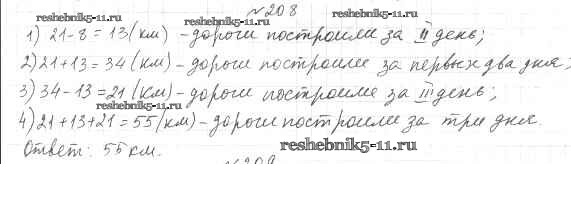 №208
reshebnik5-11.ru reshebnik5-11.ru
1) 21-8=13(км) -дороги построили за II день;
2) 21+13=34 (км) -дороги построили за первых два дня;
3) 34-13=21 (км)-дороги построили за III день;
reshebnik5-11.ru
4) 21+13+21=55(км)-дороги построили за три дня.
Ответ: 55 км.
reshebnik5-11.ru
№209